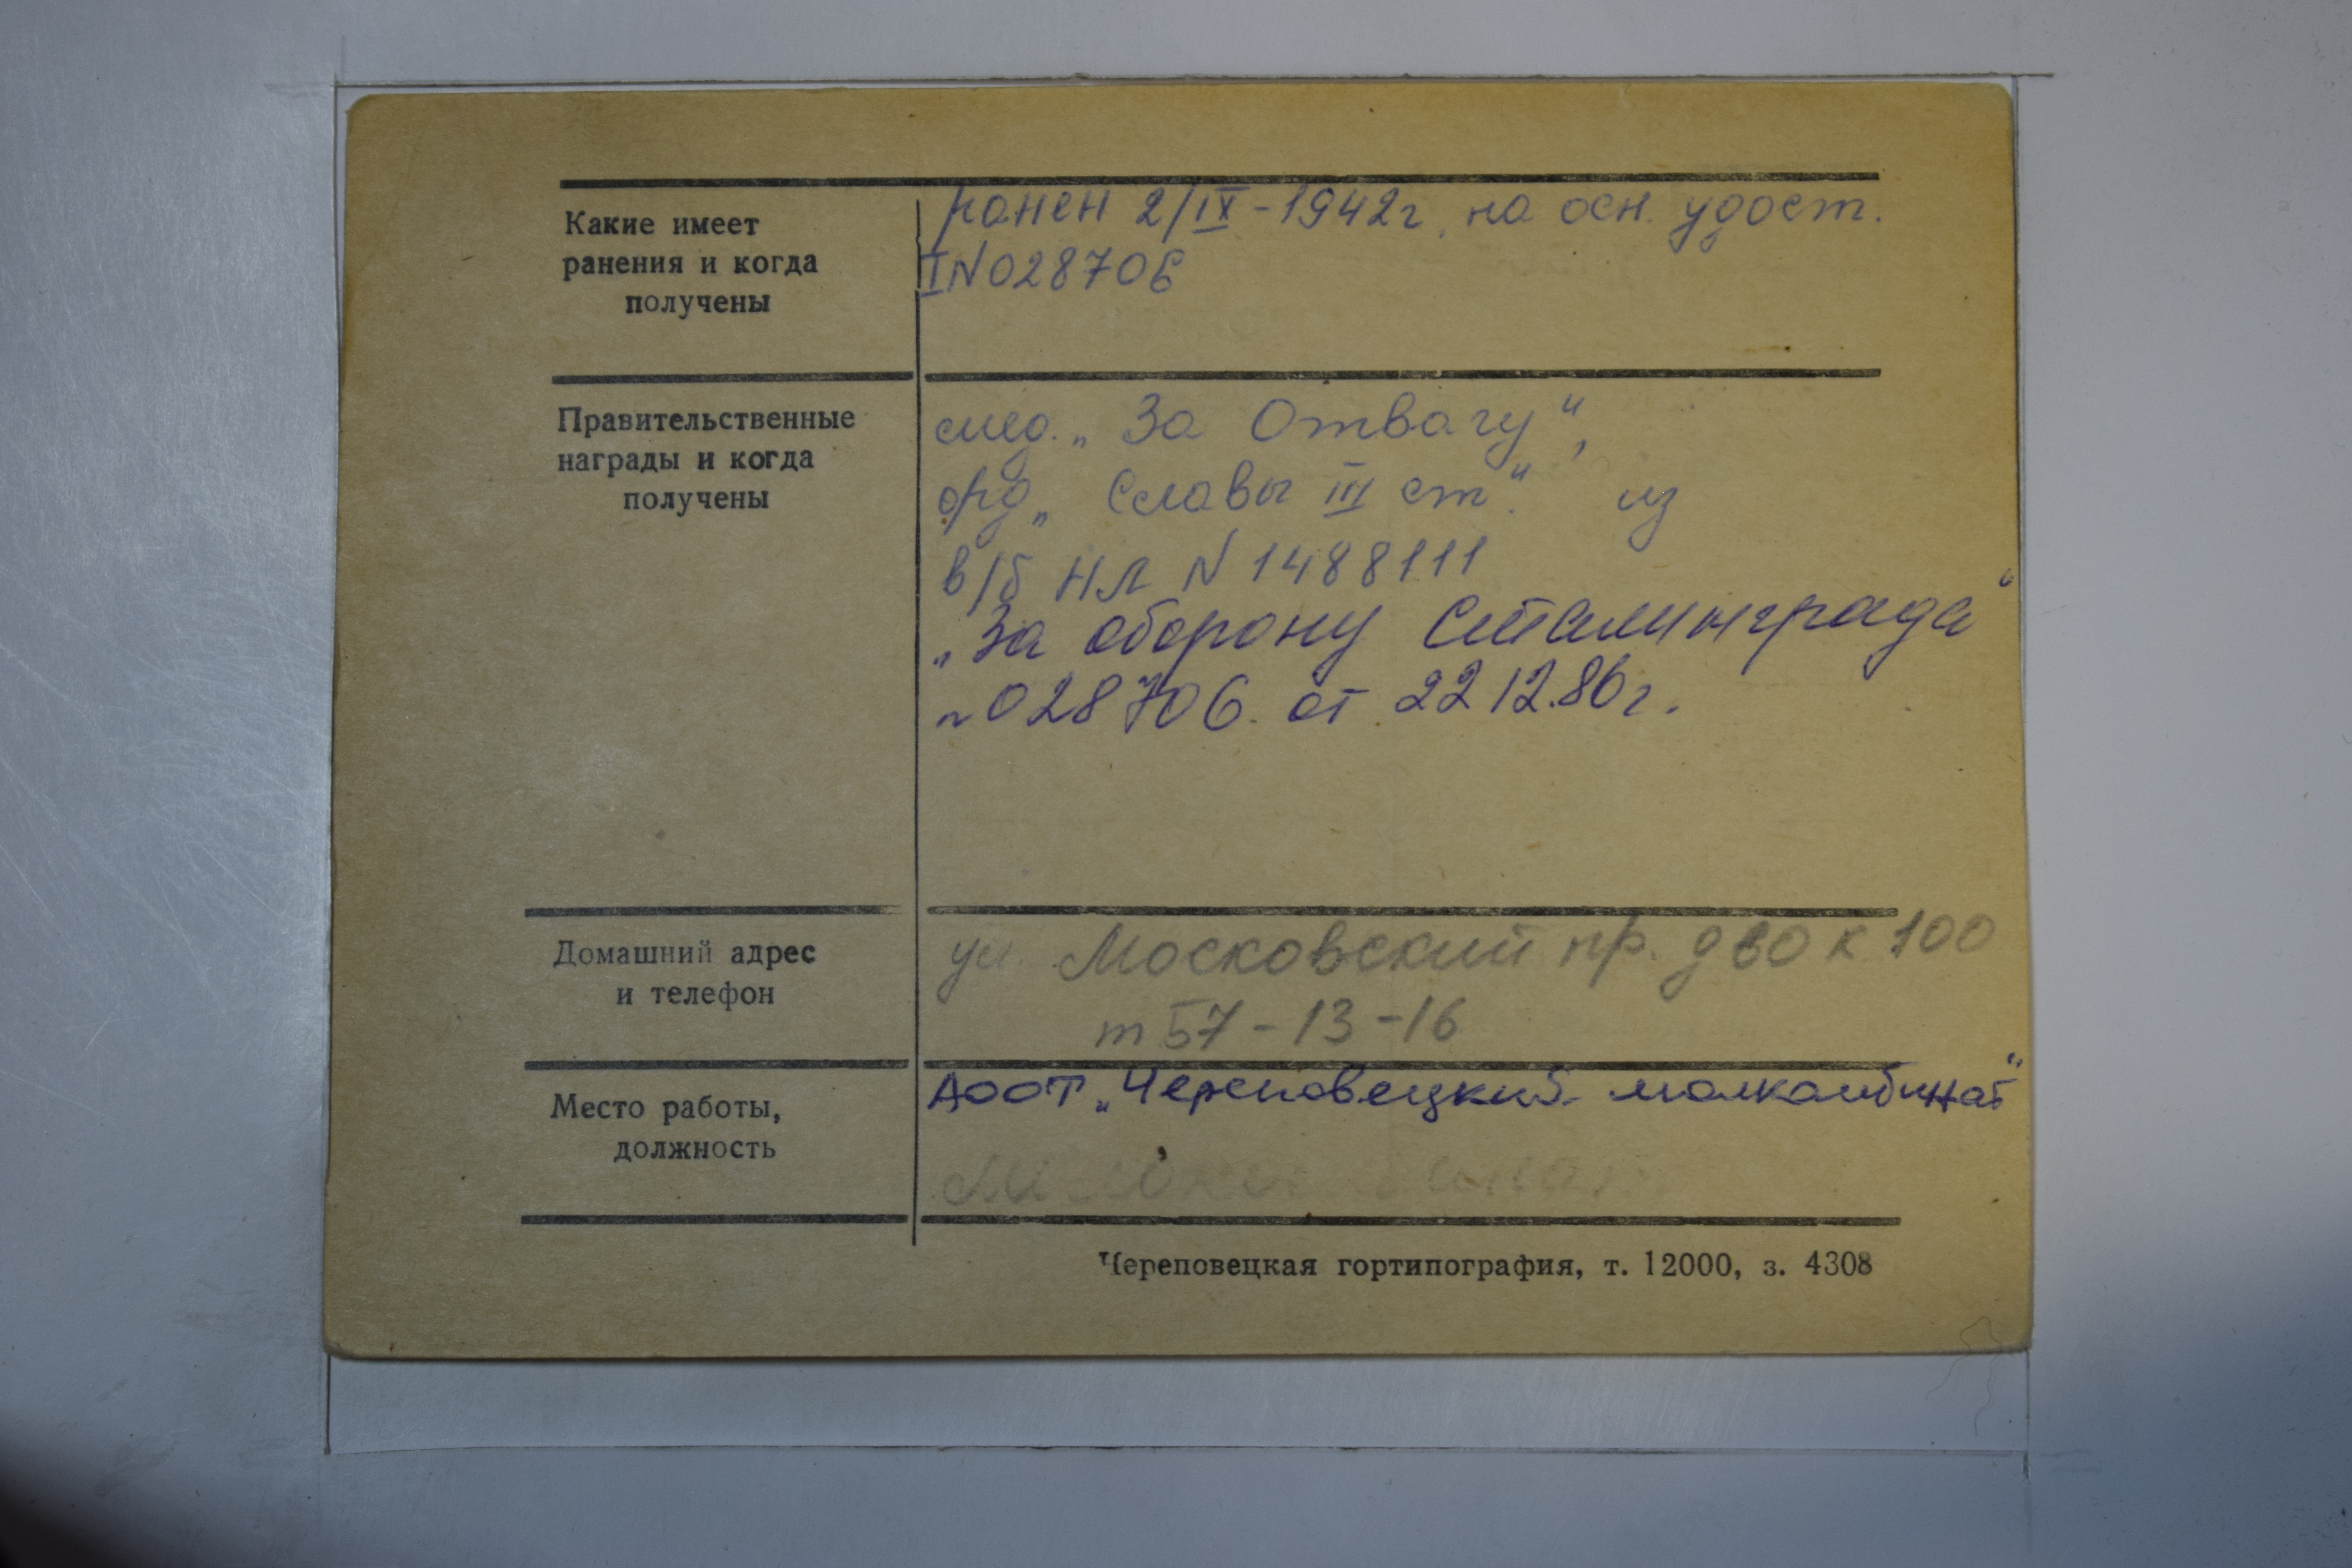 Какие имеет
ранения и когда
получены
ранен 2/IX-1942г. на осн. удост.
I N 028706
Правительственные
награды и когда
получены
мед. „За Отвагу“,
орд. „Славы III ст.“ из
в/б НЛ N 1488111
„За оборону Сталинграда“
N 028706 от 22 12.86г.
Домашний адрес
и телефон
ул. Московский пр. д 60 к 100
т 57-13-16
Место работы,
должность
АООТ „Череповецкий молкомбинат“
Череповецкая гортипография, т. 12000, з. 4308